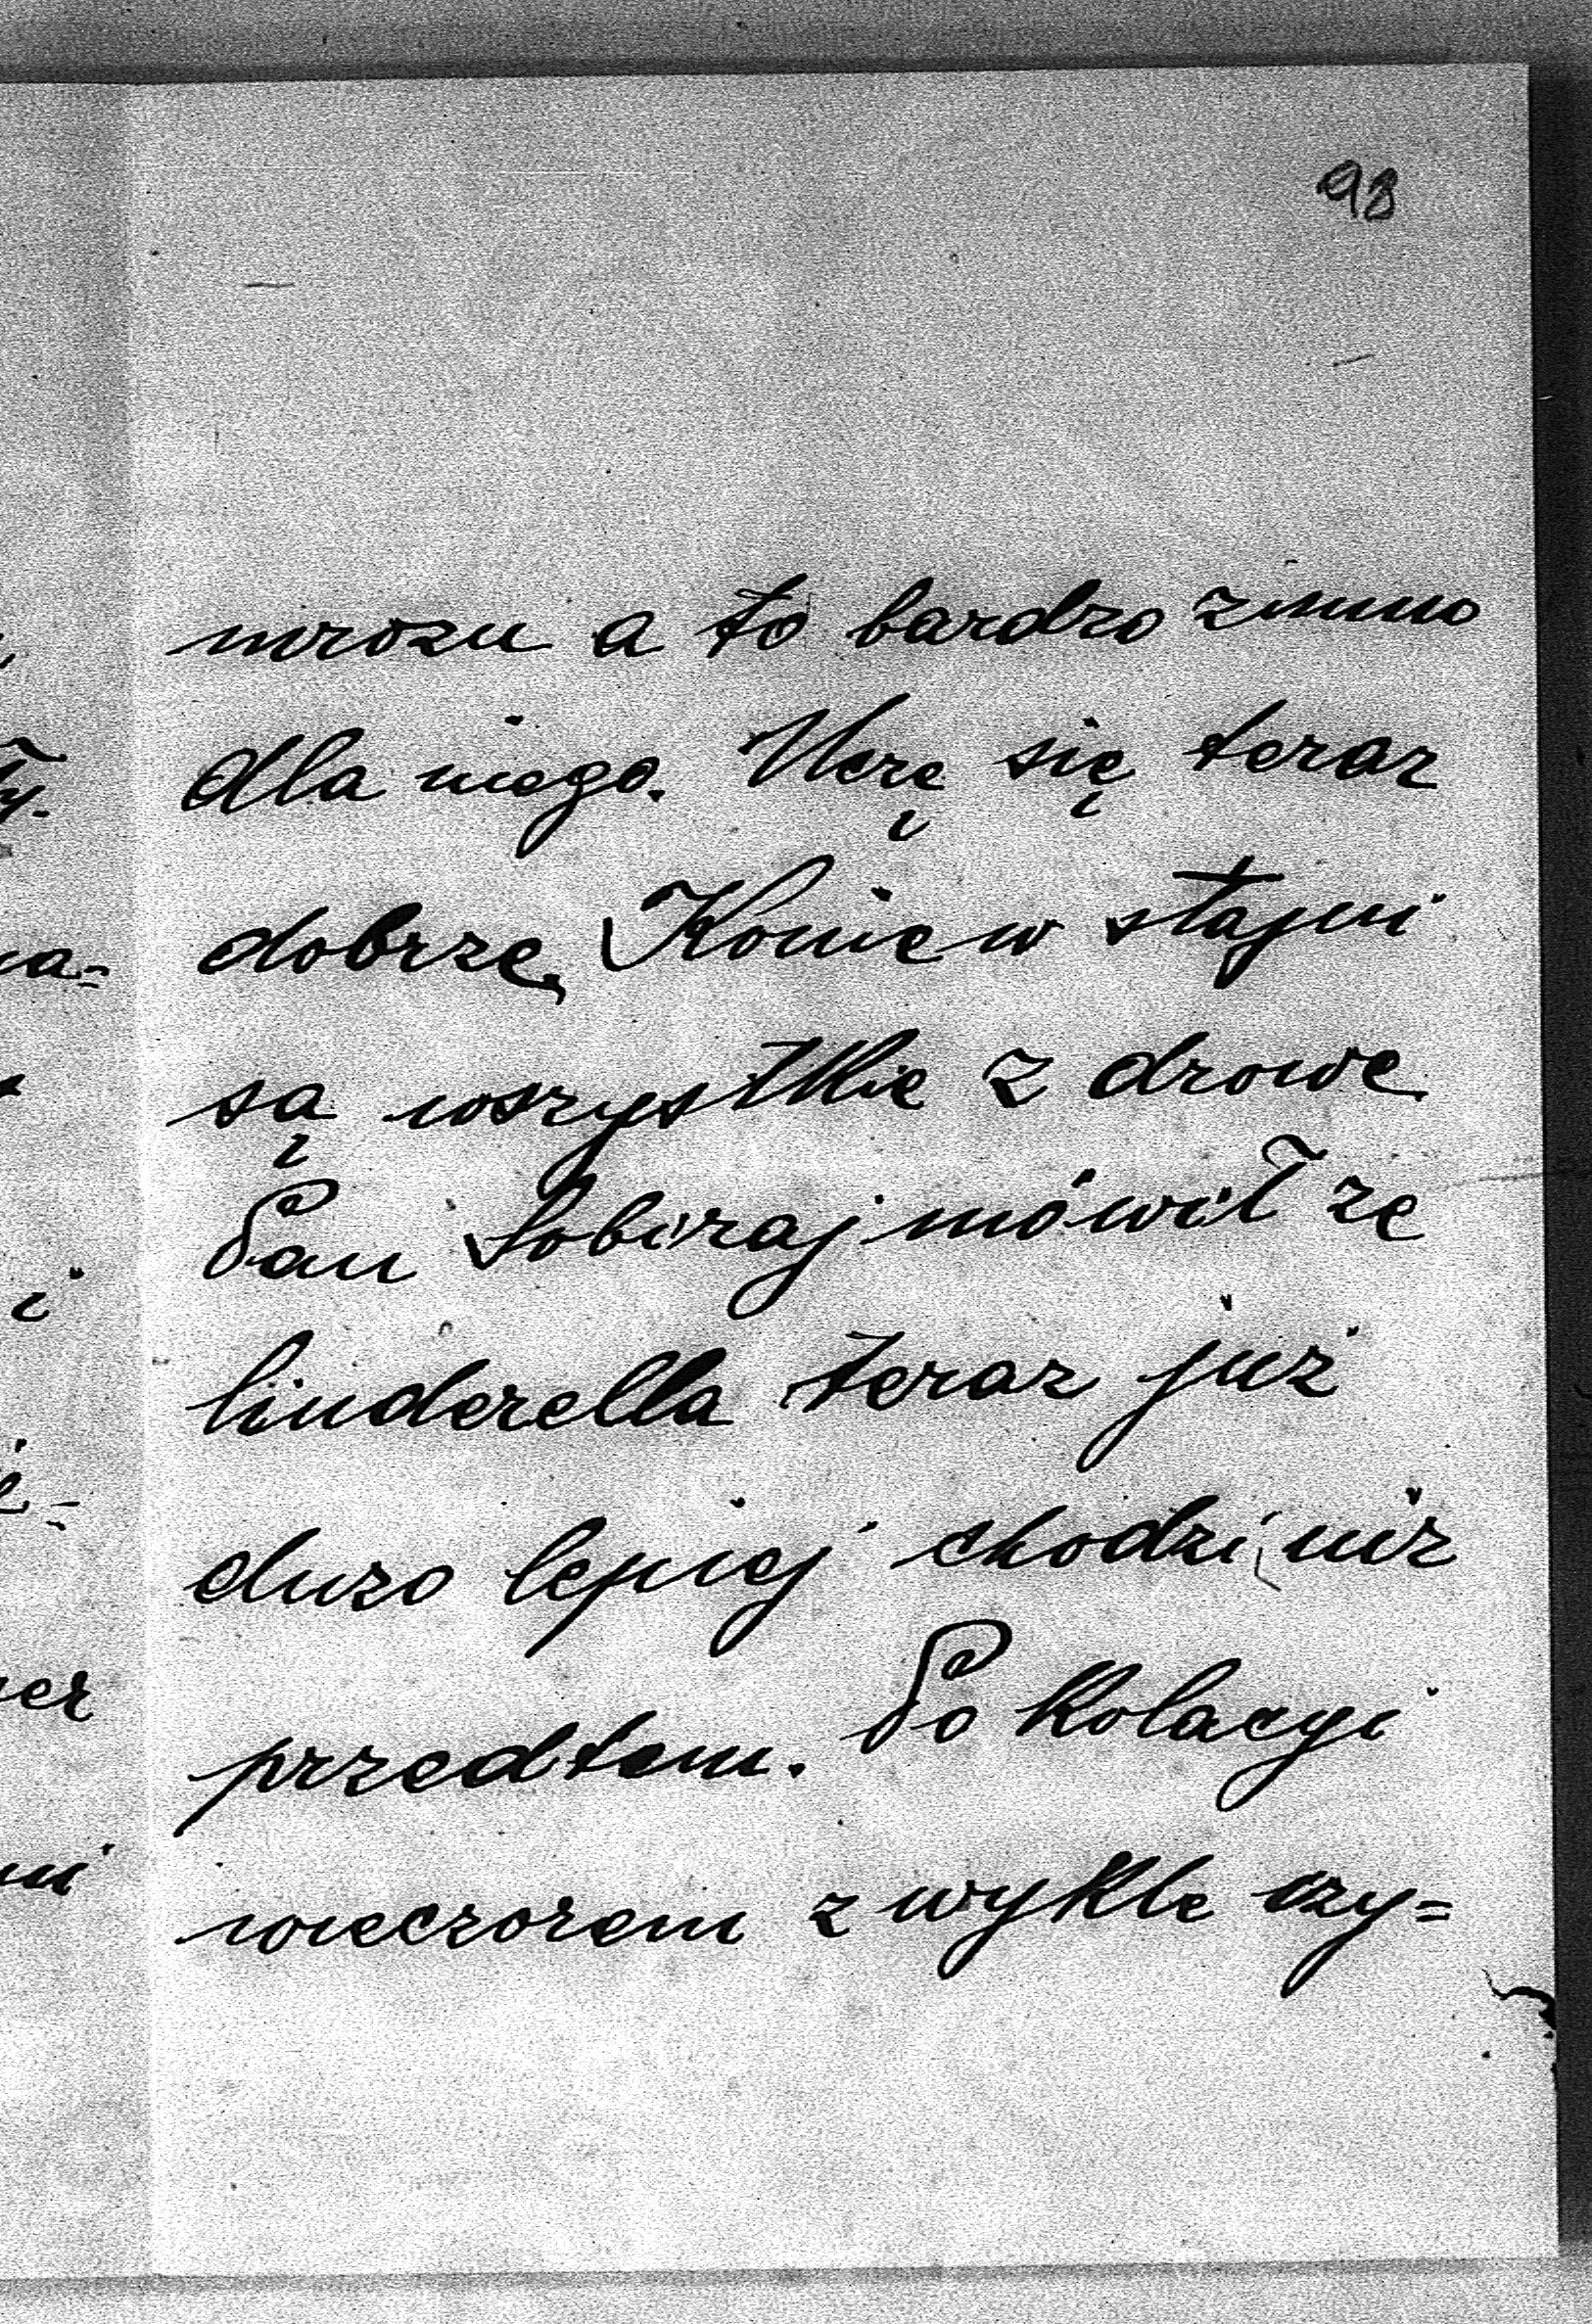 98
mrozu a to bardzo zimno
dla niego. Uczę się teraz
dobrze, Konie w stajni
są wszystkie z drowe.
Pan Sobiraj mówił ze
Cinderella teraz już
duzo lepiej chodzi niż
przedtem. Po kolacyi
wieczorem z wykle czy=